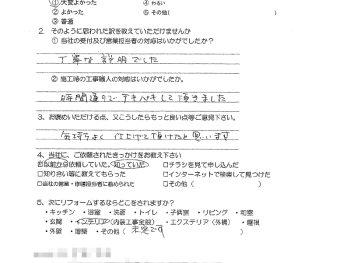 ①大変よかった ④わるい
②よかった ⑤その他(
③普通
2. そのように思われた訳を教えていただけませんか
① 当社の受付及び営業担当者の対応はいかがでしたか?
丁寧な説明でした
② 施工時の工事職人の対応はいかがでしたか。
時間通りでテキパキして頂きました
3、お褒めいただける点、又こうしたらもっと良い点等ご意見下さい。
気持ちよく 仕上げて頂けたと思います
4、当社に、ご依頼されたきっかけをお教え下さい
□以前から依頼していた、知っていた □チラシを見て申し込んだ
□知り合い等に教えてもらった □インターネットで検索して見つけた
□当社の営業・修理担当者に勧められた □その他(
5、次にリフォームするならどこをされますか?
・キッチン ・浴室 ・洗面 ・トイレ ・子供室 ・リビング ・和室
・玄関 ・インテリア(内装工事全般) ・エクステリア(外構) ・屋根
・外壁 ・増築 ・その他( 未定です